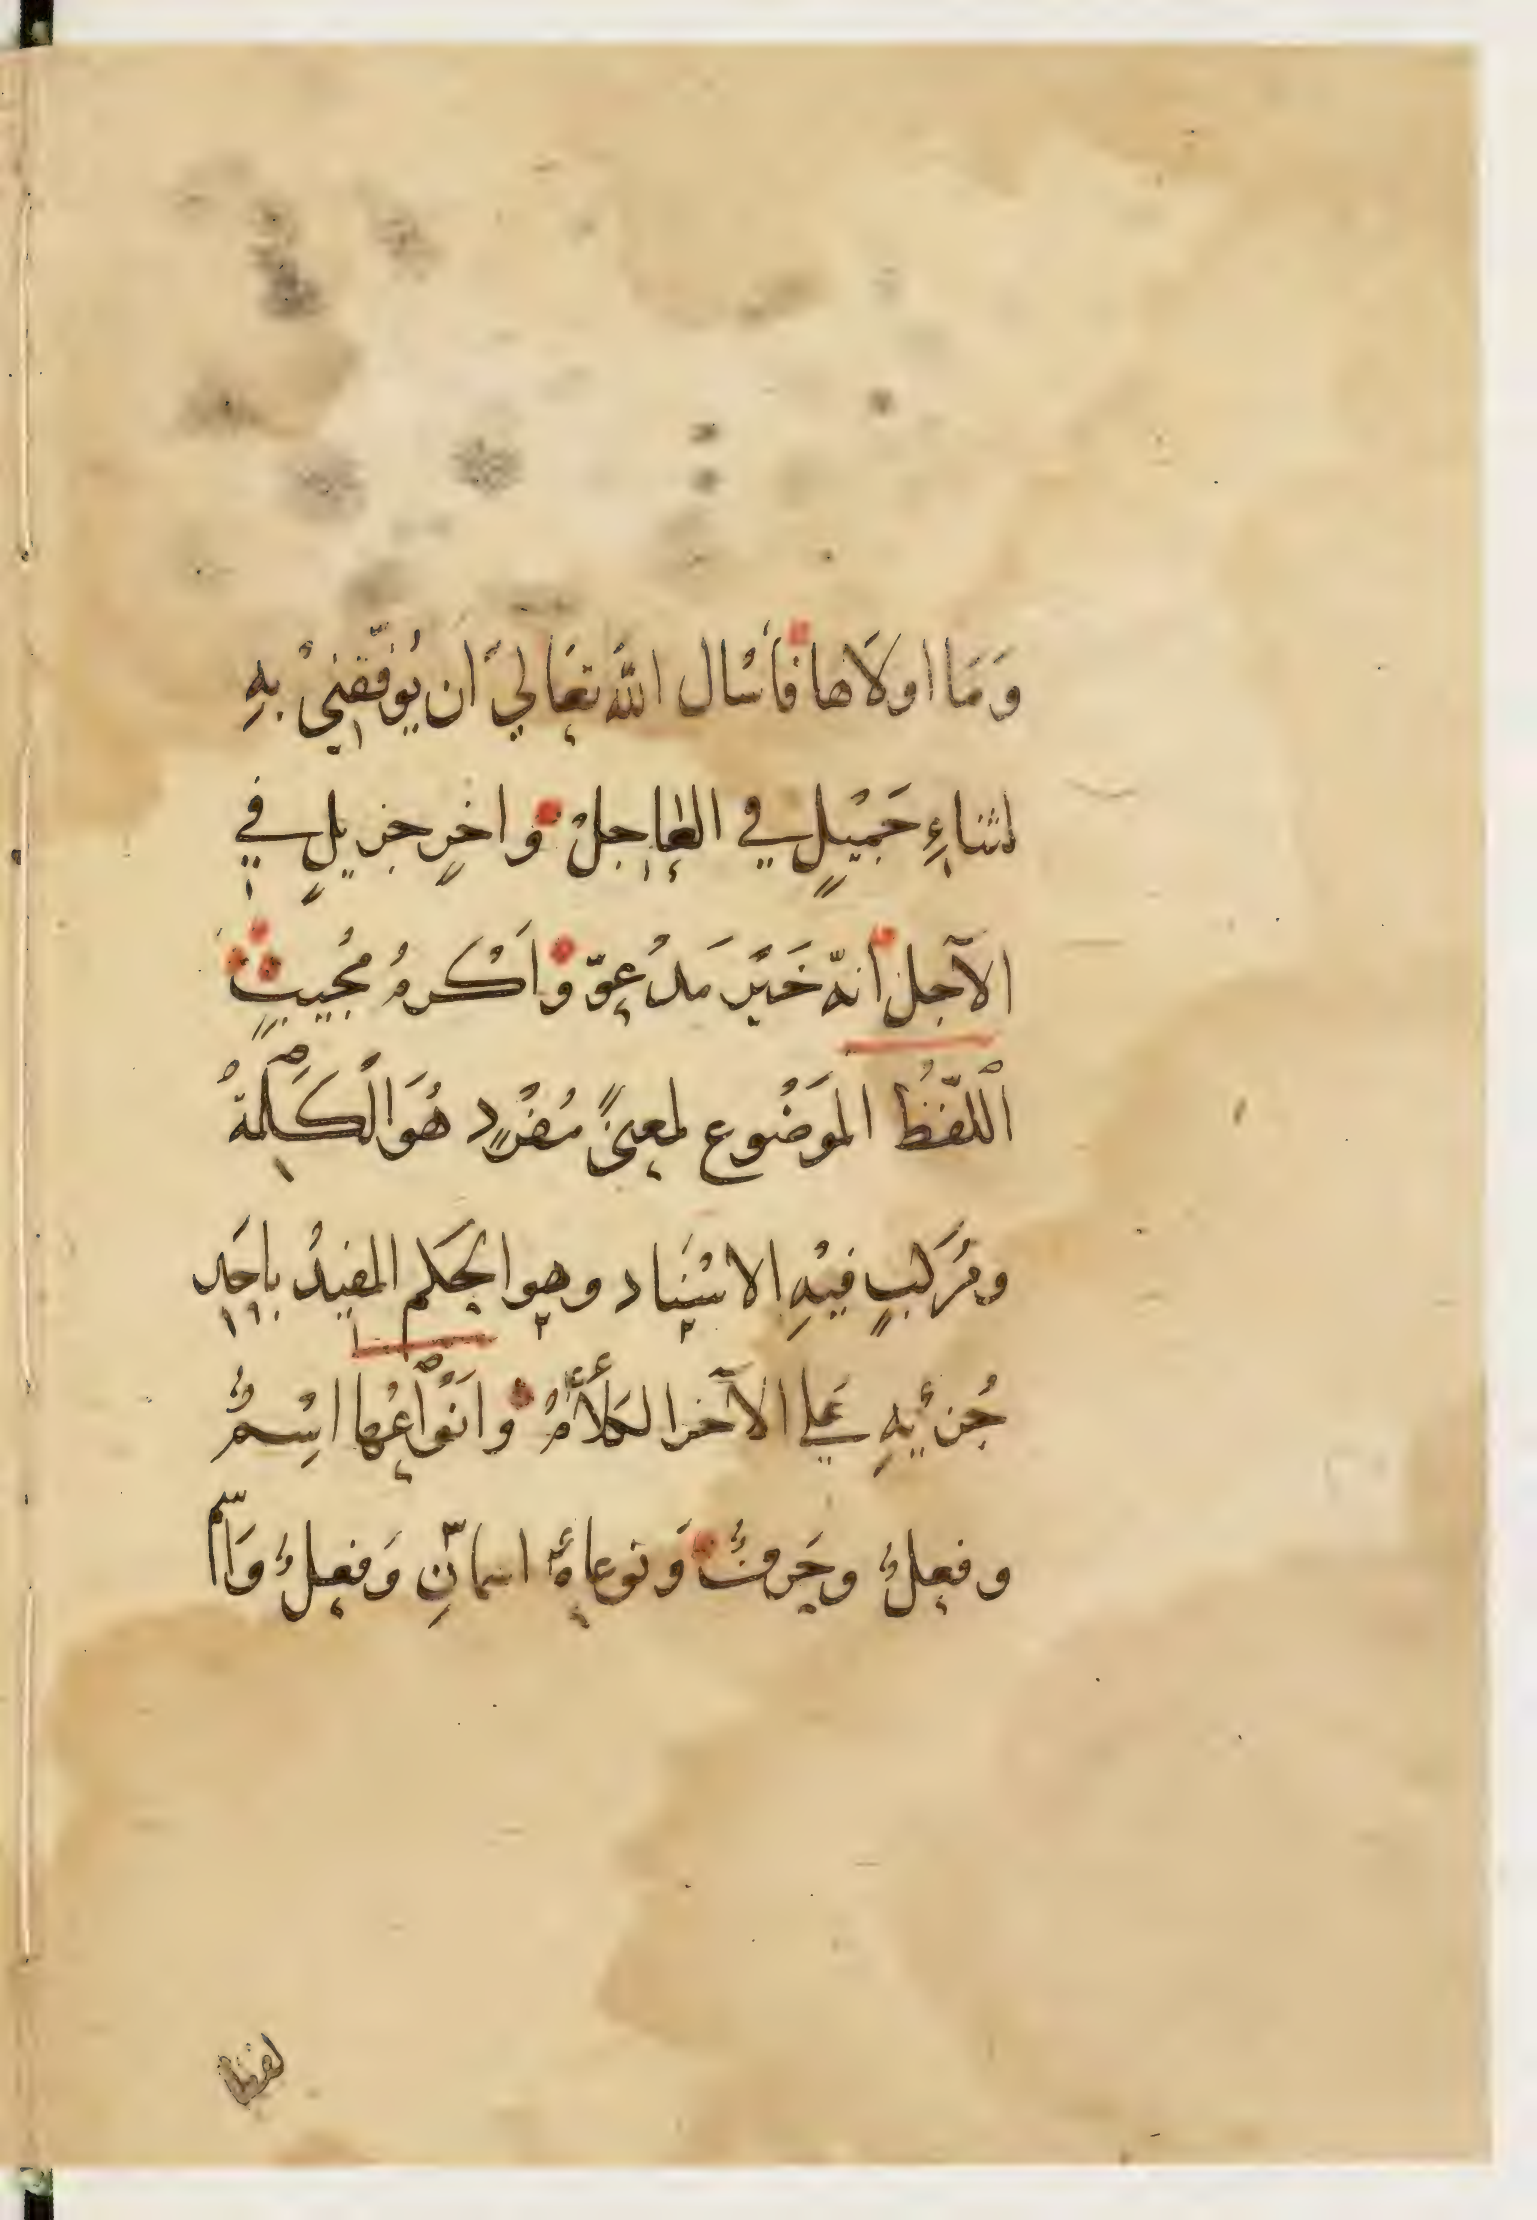 وَمَا اولَاها فَأَسْال اللّٰهَ تعَاليَ ان يُوفّقنِيْ بهِ
لثناءِ جَمْيلٍ في العاجلْ واخرٍ جزيلٍ في
الآجل انهّ خَيْرَ مَدْعوّ وَاَكْرمُ مُجيبٍ
اللّفظُ الموَضُوع لمعنىً مُفْردٍ هُوَ الْكَلمةُ
ومُرَكبٍ فيْهِ الاسْنَاد وهو الحَكم المفيدُ باحَد
جُزْئيهِ علي الآخر الكلَامُ وانَوْاعُها اسْمٌ
وفعلٌ وحَرفٌ وَنوعاهُ اسمانِ وَفعلٌ وَاسم
لفظا